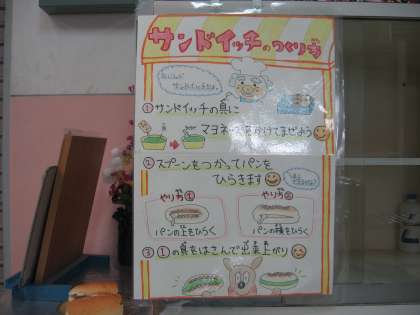 サンドイッチのつくり方
①サンドイッチの具に
マヨネーズをかけてまぜよう
②スプーンをつかってパンを
ひらきます
やり方①
やり方②
パンの上をひらく
パンの横をひらく
③①の具をはさんで出来上がり